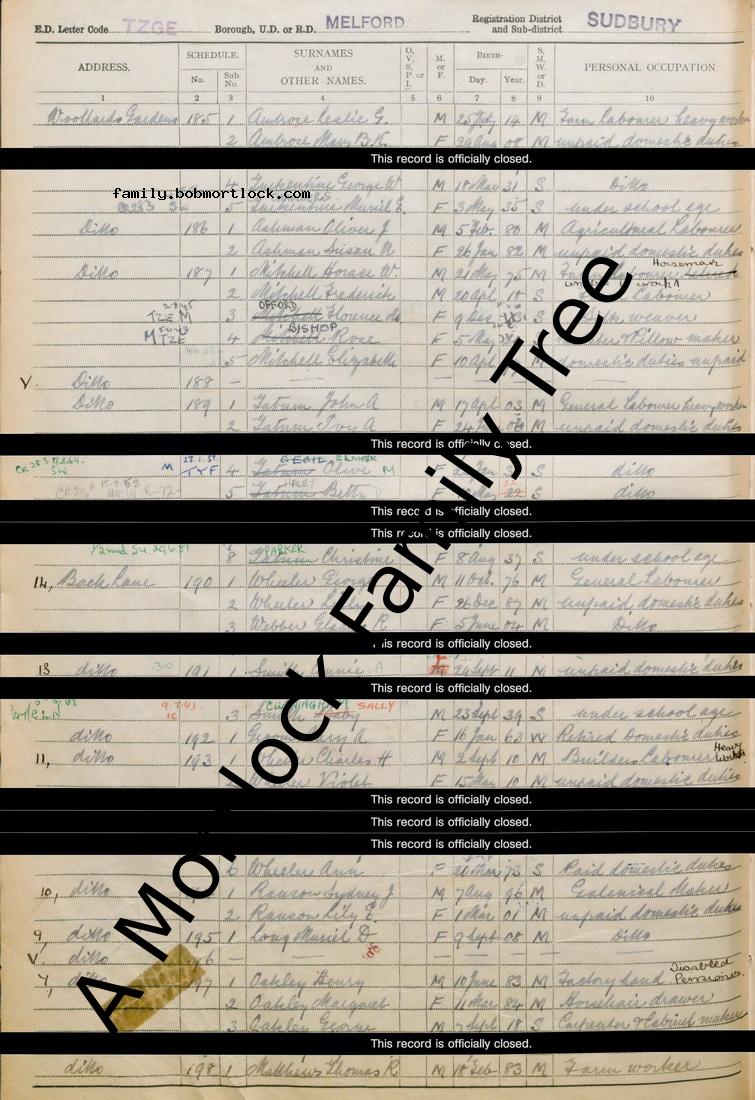 E.D. Letter Code TZGE Borough, U.D. or R.D. MELFORD Registration District and Sub-district SUDBURY
ADDRESS. SCHEDULE. No. Sub. No. SURNAMES AND OTHER NAMES. O, V, S, P, or I. M. or F. BIRTH- Day. Year. S, M, W, or D. PERSONAL OCCUPATION.
1 2 3 4 5 6 7 8 9 10
Woollards Gardens 185 1 Ambrose Leslie G. M 25 14 M Farm Labourer heavy worker
2 Ambrose Mary B.K. F 29 Aug 08 M unpaid domestic duties
This record is officially closed.
4 Turkentine George W M 18 Mar 31 S Ditto
family.bobmortlock.com
CR283 SW 5 Turkentine Muriel E. F 3 May 35 S under school age
Ditto 186 1 Ashman Oliver J M 5 Feb. 80 M Agricultural Labourer
2 Ashman Susan F 26 Jan 82 M unpaid domestic duties
Horseman
Ditto 187 1 Mitchell Horace W. M 21 May 75 M Labourer
2 Mitchell Frederick M 20 Apl 18 S Labourer
OFFORD
TZE M 3 Mitchell Florence F 9 Dec S weaver
BISHOP
M TZE 4 Mitchell Rose F 5 May Pillow maker
5 Mitchell Elizabeth F 10 Apl M domestic duties unpaid
V. Ditto 188 — — — —
Ditto 189 1 Tatum John A M 17 Apl 03 M General Labourer heavy worker
2 Tatum Ivy A F 24 M unpaid domestic duties
This record is officially closed.
CR283 SW M 23.1.51 TYF 4 Tatum Olive M F Jan S ditto
HALEY
5 Tatum Betty S ditto
This record is officially closed.
This record is officially closed.
PARKER
8 Tatum Christine F 8 Aug 37 S under school age
14, Back Lane 190 1 Wheeler George M 11 76 M General Labourer
2 Wheeler F 26 Dec 87 M unpaid domestic duties
3 Webber R F 5 June 04 M Ditto
This record is officially closed.
13 ditto 191 1 Smith Annie A F 24 Sept 11 M unpaid domestic duties
This record is officially closed.
9.7.43 16 CUNNINGHAM SALLY
3 Smith Baby M 23 Sept 39 S under school age
ditto 192 1 A F 16 Jan 63 W Retired Domestic duties
11, ditto 193 1 Charles H M 2 Sept 10 M Builders Labourer Heavy Worker
2 Violet F 15 May 10 M unpaid domestic duties
This record is officially closed.
This record is officially closed.
This record is officially closed.
6 Wheeler Ann F S Paid domestic duties
10, ditto 1 Ranson Sydney J M 7 Aug 96 M Maker
2 Ranson Lily E. F 1 Mar 01 M unpaid domestic duties
9, ditto 195 1 Long Muriel D F 9 Sept 08 M Ditto
V. ditto 6 — — — —
7, ditto 97 1 Oakley Henry M 10 June 83 M Factory hand Disabled Pensioner
2 Oakley Margaret F 11 Mar 84 M Horsehair drawer
3 Oakley George M 7 Sept 18 S Carpenter & Cabinet maker
This record is officially closed.
ditto 198 1 Matthews Thomas R M 18 Feb 83 M Farm worker
A Mortlock Family Tree